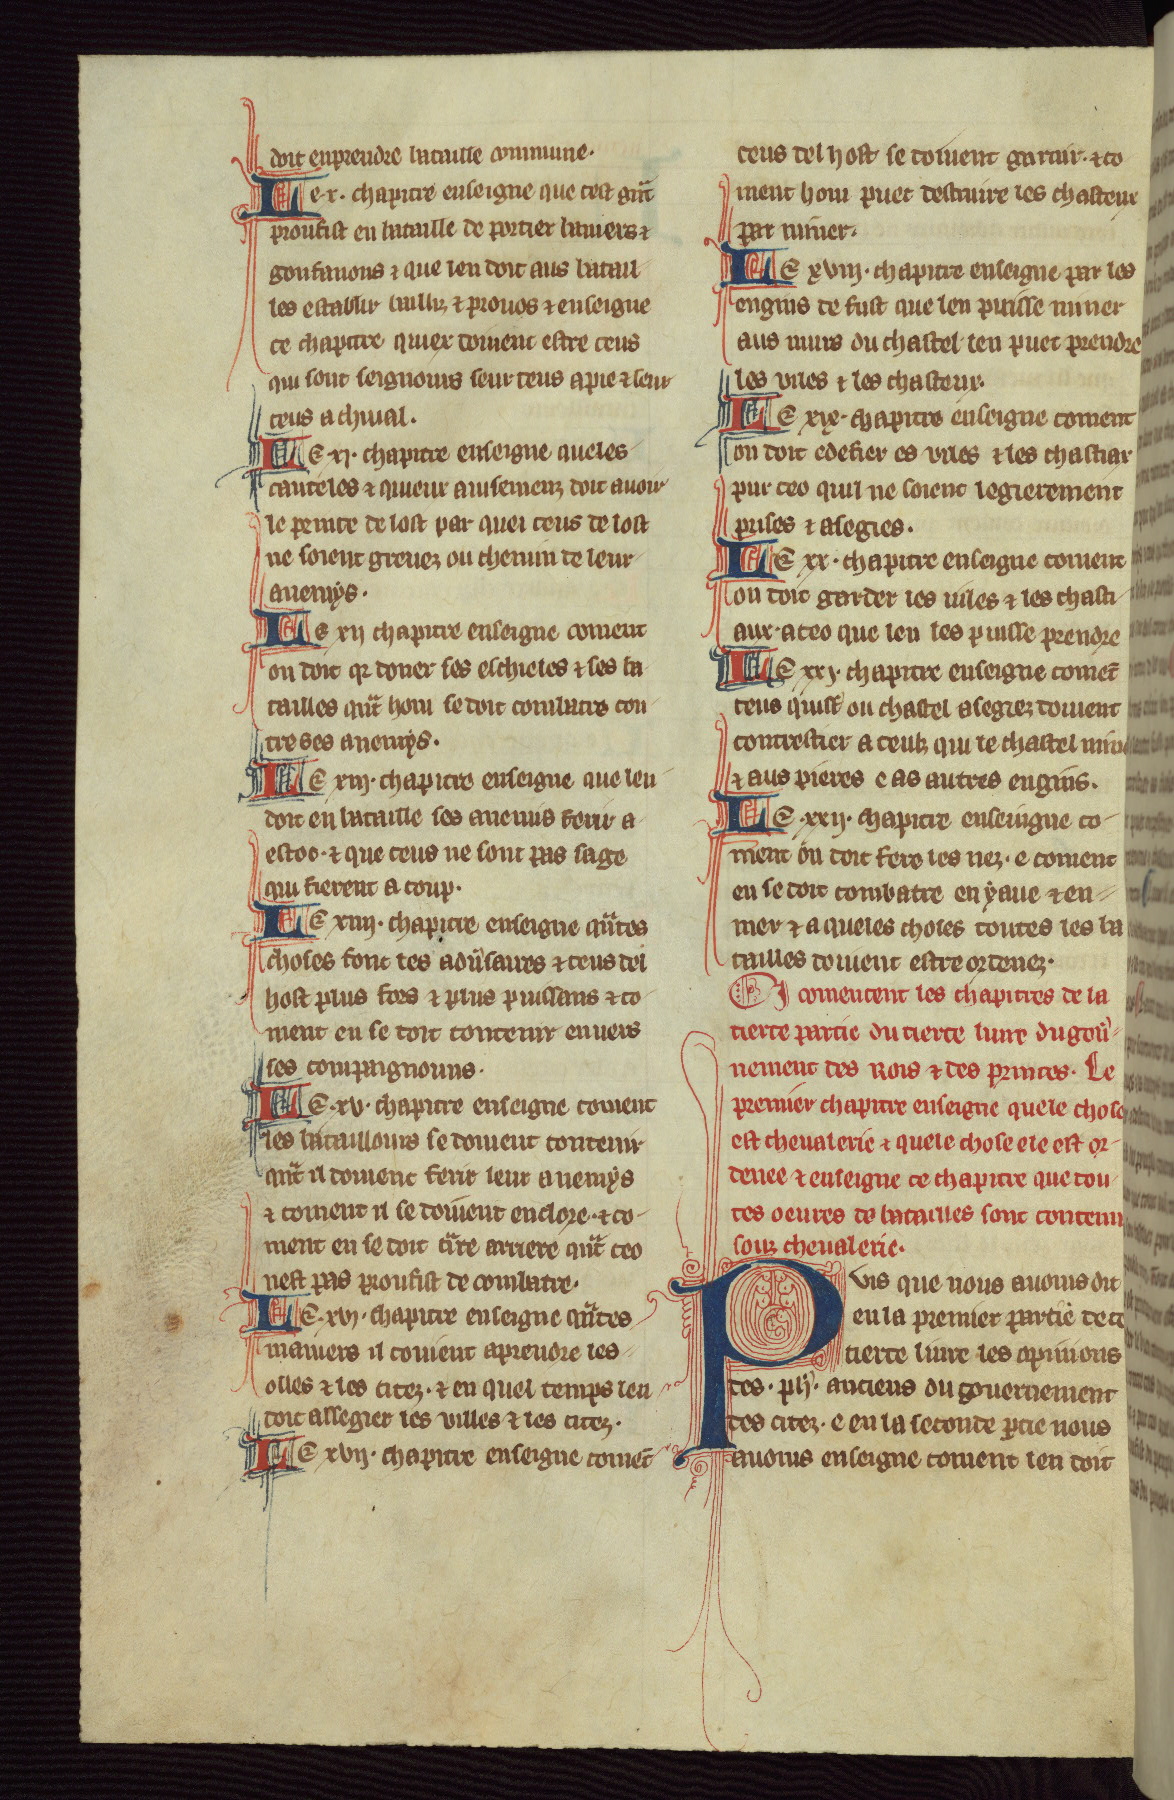 doit enprendre bataille commune.
Le .x. chapitre enseigne que cest gnt
proufist en bataille de porter banieres ⁊
gonfanons ⁊ que len doit aus batail
les establir bailliz ⁊ prouos ⁊ enseigne
ce chapitre quiex doiuent estre ceus
qui sont seignours seur ceus a pie ⁊ seur
ceus a chiual.
LE .xi. chapitre enseigne queles
cauteles ⁊ quieux auisemenz doit auoir
le prince de lost par quei ceus de lost
ne soient greuez ou chemin de leur
anemys.
LE xii chapitre enseigne coment
on doit ordoner ses eschieles ⁊ ses ba
tailles qnt hom se doit combatre con
tre ses anemys.
LE xiii. chapitre enseigne que len
doit en bataille ses anemis ferir a
estoc. ⁊ que ceus ne sont pas sage
qui fierent a coup.
LE xiiii. chapitre enseigne qntes
choses font les aduersaires ⁊ ceus del
host plus fors ⁊ plus puissans ⁊ co
ment en se doit contenir enuers
ses compaignouns.
LE .xv. chapitre enseigne coment
les batailleurs se doiuent contenir
qnt il doiuent ferir leur anemys
⁊ coment il se doiuent enclore. ⁊ co
ment en se doit tire arriere qnt ceo
nest pas proufist de combatre.
LE .xvi. chapitre enseigne qntes
manieres il couient aprendre les
olles ⁊ les citez. ⁊ en quel temps len
doit assegier les villes ⁊ les citez.
LE xvii. chapitre enseigne coment
ceus del host se doiuent garnir. ⁊ co
ment hom puet destruire les chasteux
par miner.
LE xviii. chapitre enseigne par les
engins de fust que len puisse miner
aus murs du chastel len puet prendre
les viles ⁊ les chasteux.
LE xix. chapitre enseigne coment
on doit edefier es viles ⁊ les chastiax
pur ceo quil ne soient legierement
prises ⁊ asegies.
LE xx. chapitre enseigne coment
on doit garder les viles ⁊ les chasti
aux. a ceo que len les puisse prendre
LE xxi. chapitre enseigne coment
ceus qui sunt ou chastel asegiez doiuent
contrestier a ceulz qui le chastel
⁊ aus pieres e as autres engins.
LE .xxii. chapitre enseingne co
ment on doit fere les nez. e coment
en se doit combatre en yaue ⁊ en
mer ⁊ a queles choses toutes les ba
tailles doiuent estre ordenez.
Ci comencent les chapitres de la
tierce partie du tierce liure du gouuer
nement des Rois ⁊ des princes. Le
premier chapitre enseigne quele chose
est cheualerie ⁊ quele chose ele est or
denee ⁊ enseigne ce chapitre que tou
tes oeures de batailles sont contenu
souz cheualerie.
PVis que nous auons dit
en la premier partie de ce
tierce liure les opinions
des. phi. anciens du gouernement
des citez. e en la seconde partie nous
auons enseigne coment len doit